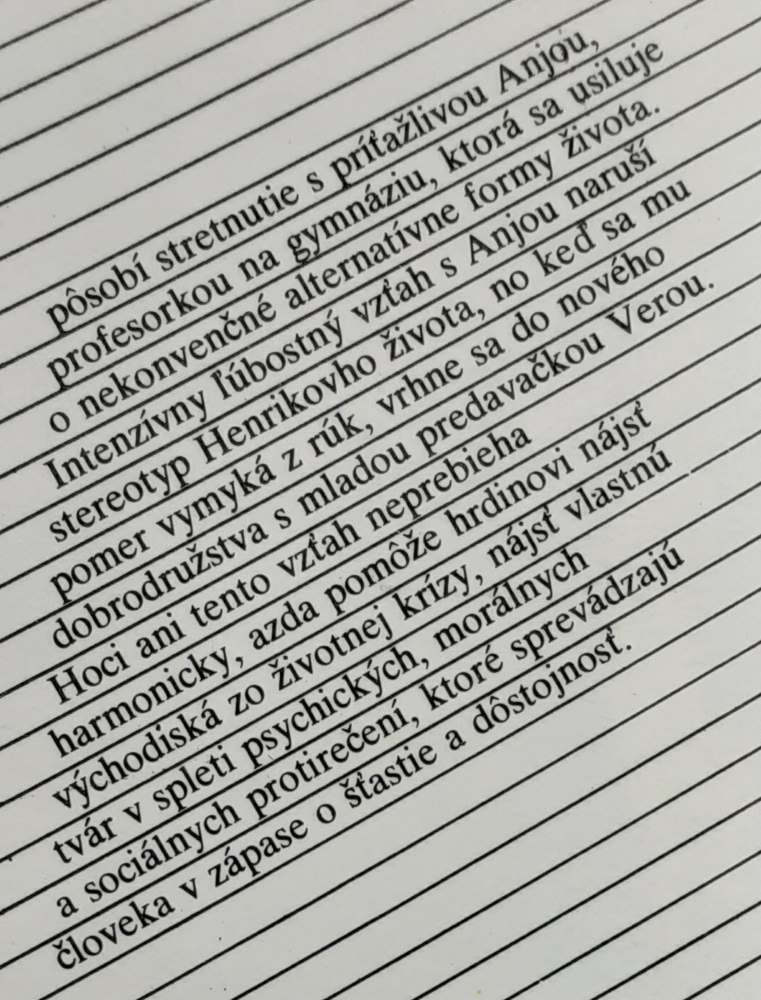 pôsobí stretnutie s príťažlivou Anjou,
profesorkou na gymnáziu, ktorá sa usiluje
o nekonvenčné alternatívne formy života.
Intenzívny ľúbostný vzťah s Anjou naruší
stereotyp Henrikovho života, no keď sa mu
pomer vymyká z rúk, vrhne sa do nového
dobrodružstva s mladou predavačkou Verou.
Hoci ani tento vzťah neprebieha
harmonicky, azda pomôže hrdinovi nájsť
východiská zo životnej krízy, nájsť vlastnú
tvár v spleti psychických, morálnych
a sociálnych protirečení, ktoré sprevádzajú
človeka v zápase o šťastie a dôstojnosť.